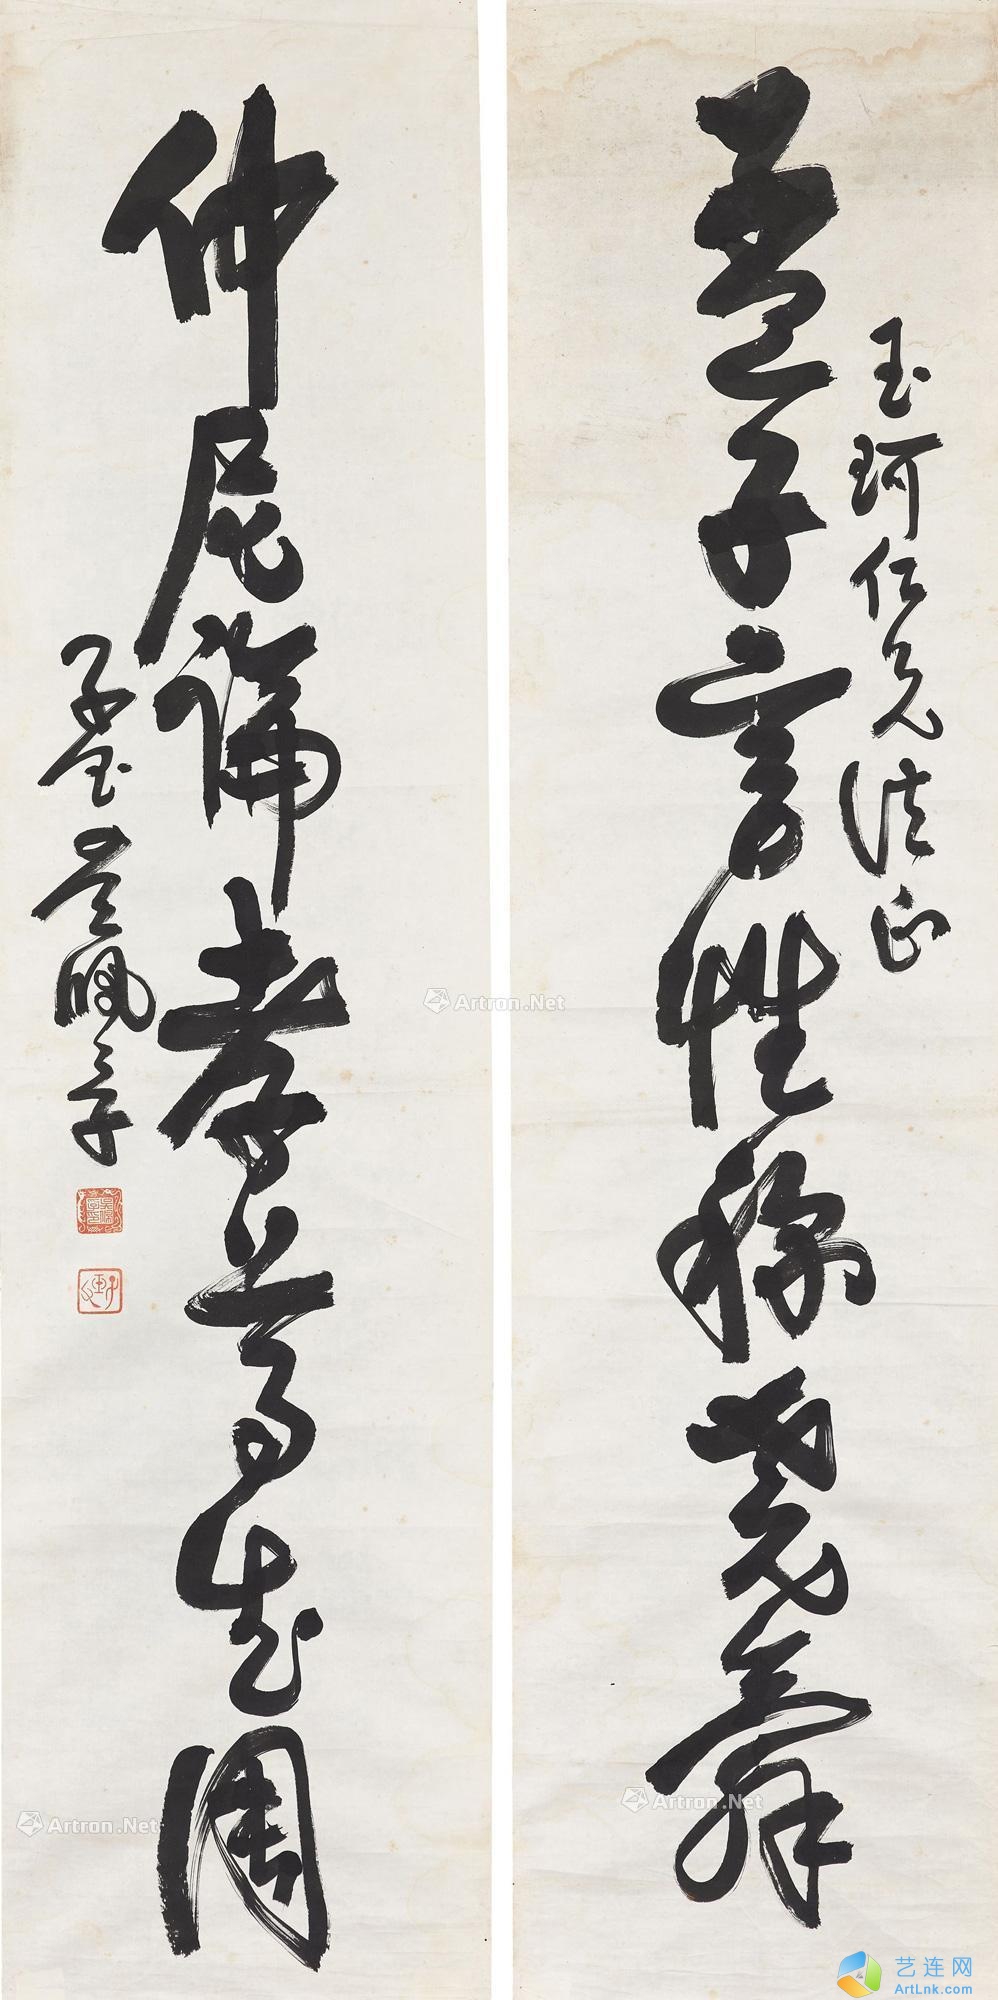 玉珂仁兄法正
孟子言性稱堯舜
仲尼論孝首武周
子玉吳佩孚
Artron.Net
Artron.Net
Artron.Net
艺连网
ArtLnk.com